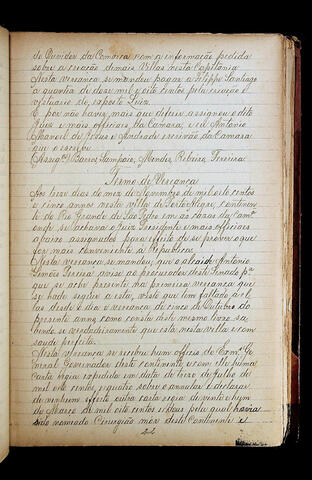 do Ouvidor da Comarca com a informação pedida
sobre a creação de mais Villas nesta Capitania
Nesta vereança se mandou pagar a Felippe Santiago
a quantia de doze mil e oito centos pela creação e
vestuario do exposto Luiz.
E por não haver mais que deferir assignou o dito
Juiz e mais officiaes da Camara; eu Antonio
Manoel de Jesus e Andrade escrivão da Camara
que o escrevi
Assigos Barros, Sampaio, Mendes, Ribeiro, Ferreira
Termo de Vereança
Aos treze dias do mez de Novembro de mil oito centos
e cinco annos nesta villa de Porto Alegre, continen
te do Rio Grande de São Pedro em as casas da Camª
onde se achava o Juiz Presidente e mais officiaes
abaixo assignados para effeito de se prover o que
for mais conveniente ao Republica
Nesta vereança se mandou que o alcaide Antonio
Simões Pereira avise ao procurador deste Senado pª
que se ache presente na primeira vereança que
se hade seguir a esta, visto que tem faltado á el
las desde o dia e vereança de cinco de Outubro do
presente anno, como consta deste mesmo livro, sa
bendo se verdadeiramente que está nesta villa e com
saude perfeita.
Nesta vereança se recebeu hum officio do Exmº Ge
neral Governador deste continente e com elle huma
carta regia expedida em data de treze de Julho de
mil oito centos e quatro sobre o annular e declarar
de nenhum effeito outra carta regia de vinte e hum
de Março de mil oito centos e dous pela qual havia
sido nomeado Cirurgião mor deste Continente e